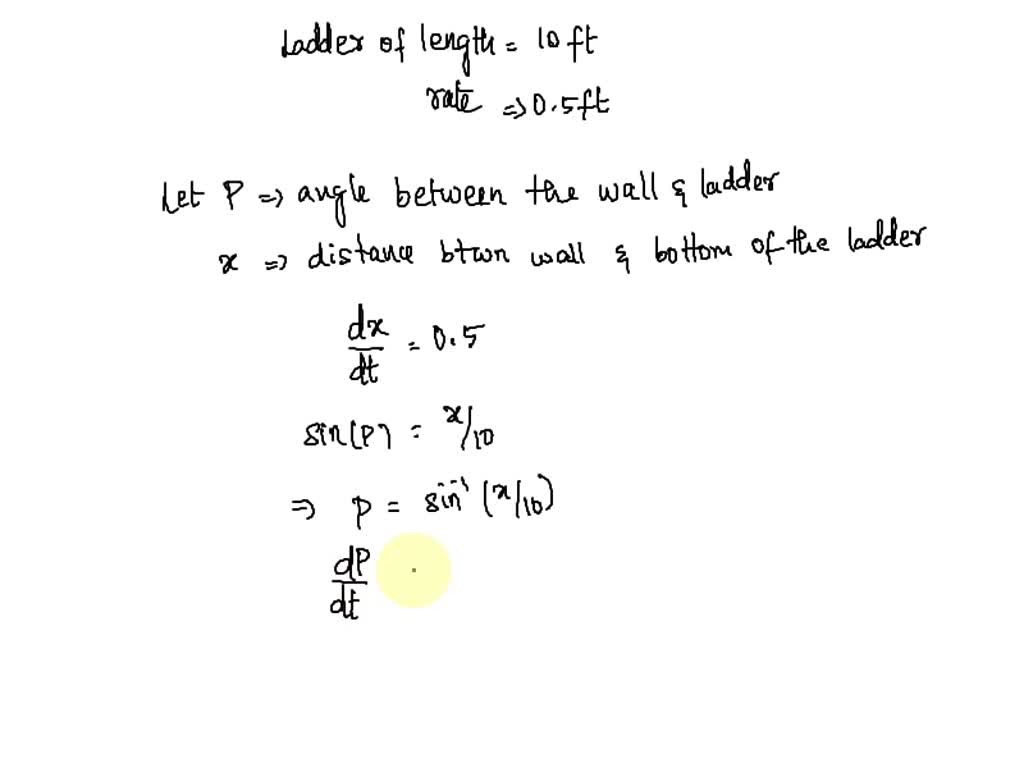 Ladder of length = 10 ft
rate => 0.5 ft
Let P => angle between the wall & ladder
x => distance btwn wall & bottom of the ladder
dx/dt = 0.5
sin(P) = x/10
=> P = sin⁻¹ (x/10)
dP/dt